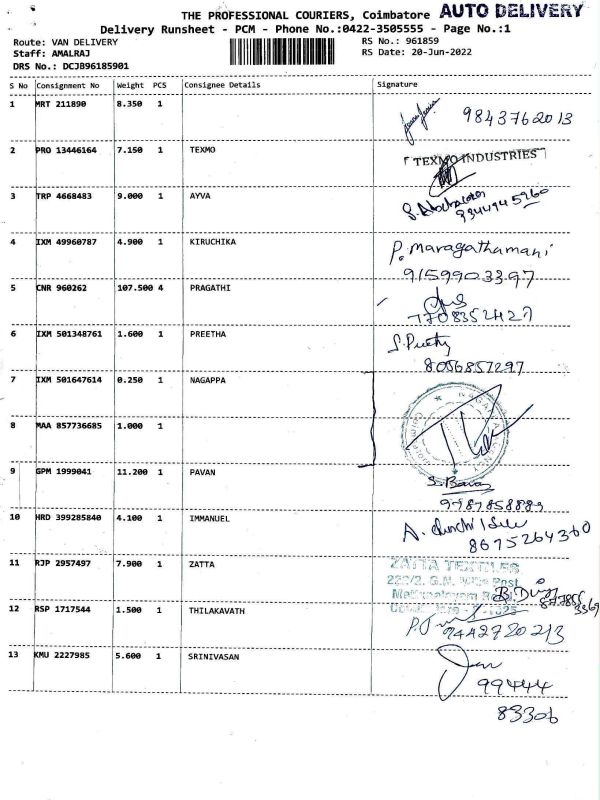 THE PROFESSIONAL COURIERS, Coimbatore AUTO DELIVERY
Delivery Runsheet - PCM - Phone No.:0422-3505555 - Page No.:1
Route: VAN DELIVERY RS No.: 961859
Staff: AMALRAJ RS Date: 20-Jun-2022
DRS No.: DCJB96185901
S No Consignment No Weight PCS Consignee Details Signature
1 MRT 211890 8.350 1 9843762013
2 PRO 13446164 7.150 1 TEXMO TEXMO INDUSTRIES
3 TRP 4668483 9.000 1 AYVA
9344945960
4 IXM 49960787 4.900 1 KIRUCHIKA P. Maragathamani
9159903397
5 CNR 960262 107.500 4 PRAGATHI
7708352427
6 IXM 501348761 1.600 1 PREETHA S. Preethy
8056857297
7 IXM 501647614 0.250 1 NAGAPPA
8 MAA 857736685 1.000 1
9 GPM 1999041 11.200 1 PAVAN
9787858889
10 HRD 399285840 4.100 1 IMMANUEL
8675264360
11 RJP 2957497 7.900 1 ZATTA ZATTA TEXTILES
12 RSP 1717544 1.500 1 THILAKAVATH
9442720213
13 KMU 2227985 5.600 1 SRINIVASAN
99444
83306